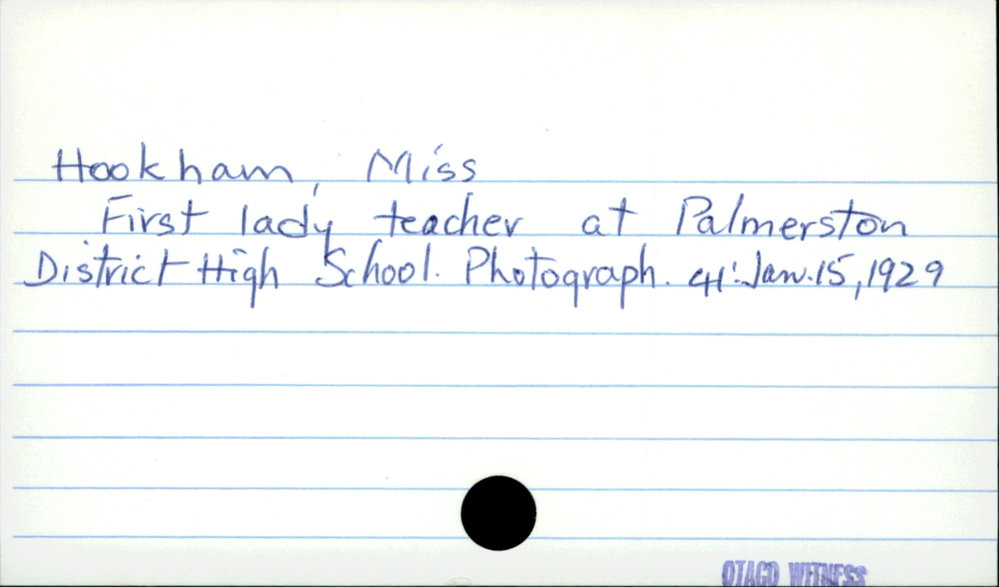 Hookham, Miss
First lady teacher at Palmerston
District High School. Photograph. 41: Jan. 15, 1929
OTAGO WITNESS